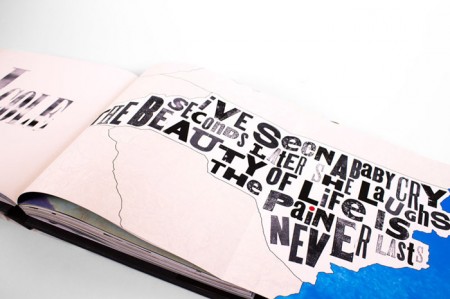 J COLE
iVE SEEN A BABY CRY
SECONDS LATER SHE LAUGHS
THE BEAUTY OF LiFE iS
THE PAiN
NEVER LASTS